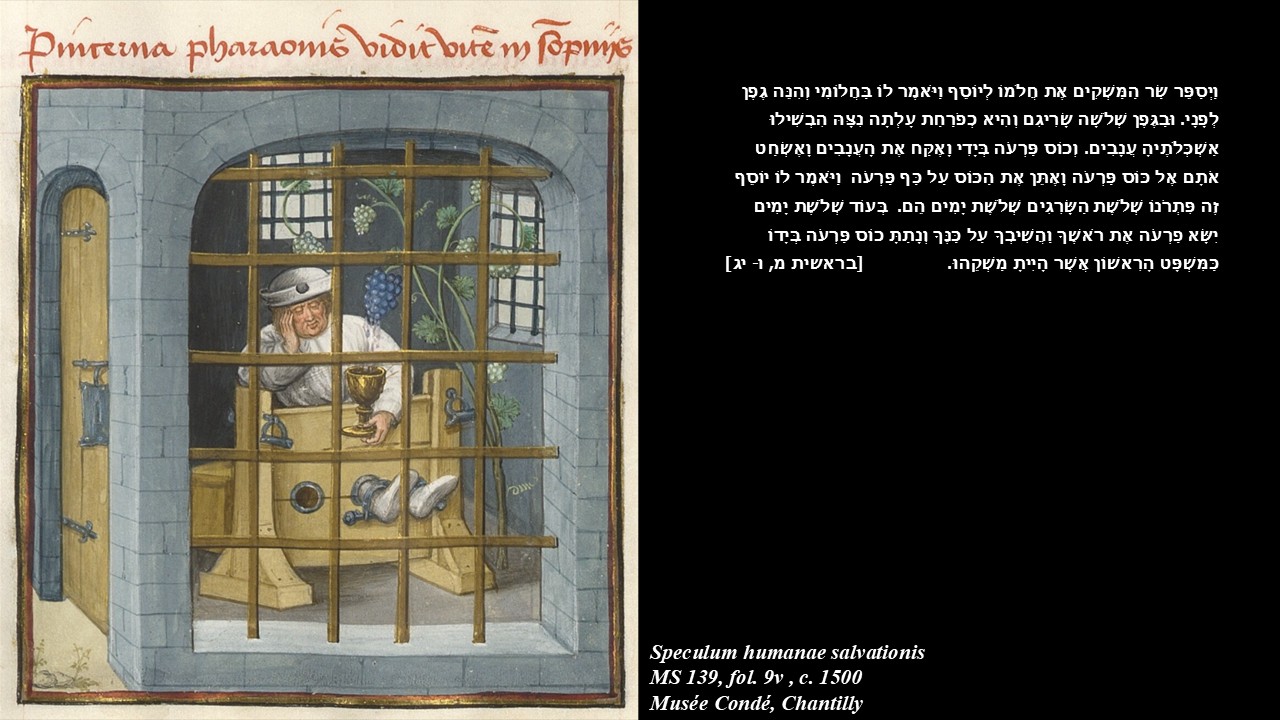 Pincerna pharaonis̄ vidit vitē in sōpnijs
וַיְסַפֵּר שַׂר הַמַּשְׁקִים אֶת חֲלֹמוֹ לְיוֹסֵף וַיֹּאמֶר לוֹ בַּחֲלוֹמִי וְהִנֵּה גֶפֶן
לְפָנָי. וּבַגֶּפֶן שְׁלֹשָׁה שָׂרִיגִם וְהִיא כְפֹרַחַת עָלְתָה נִצָּהּ הִבְשִׁילוּ
אַשְׁכְּלֹתֶיהָ עֲנָבִים. וְכוֹס פַּרְעֹה בְּיָדִי וָאֶקַּח אֶת הָעֲנָבִים וָאֶשְׂחַט
אֹתָם אֶל כּוֹס פַּרְעֹה וָאֶתֵּן אֶת הַכּוֹס עַל כַּף פַּרְעֹה וַיֹּאמֶר לוֹ יוֹסֵף
זֶה פִּתְרֹנוֹ שְׁלֹשֶׁת הַשָּׂרִגִים שְׁלֹשֶׁת יָמִים הֵם. בְּעוֹד שְׁלֹשֶׁת יָמִים
יִשָּׂא פַרְעֹה אֶת רֹאשֶׁךָ וַהֲשִׁיבְךָ עַל כַּנֶּךָ וְנָתַתָּ כוֹס פַּרְעֹה בְּיָדוֹ
כַּמִּשְׁפָּט הָרִאשׁוֹן אֲשֶׁר הָיִיתָ מַשְׁקֵהוּ. [בראשית מ, ו- יג]
Speculum humanae salvationis
MS 139, fol. 9v , c. 1500
Musée Condé, Chantilly